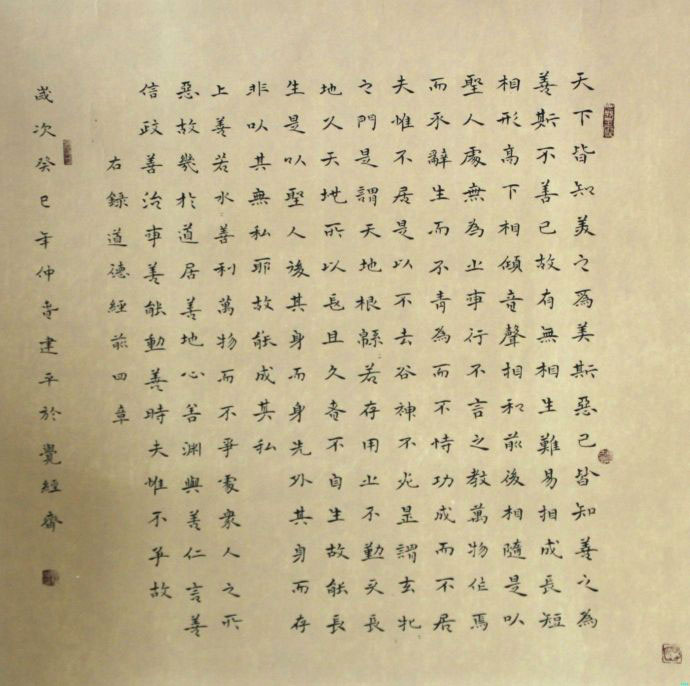 天下皆知美之爲美斯惡已皆知善之為
善斯不善已故有無相生難易相成長短
相形高下相傾音聲相和前後相隨是以
聖人處無為之事行不言之教萬物作焉
而不辭生而不有為而不恃功成而不居
夫惟不居是以不去谷神不死是謂玄牝
之門是謂天地根緜若存用之不勤天長
地久天地所以長且久者不自生故能長
生是以聖人後其身而身先外其身而存
非以其無私耶故能成其私
上善若水善利萬物而不爭處衆人之所
惡故幾於道居善地心善渊與善仁言善
信政善治事善能動善時夫惟不爭故
右錄道德經前四章
歲次癸巳年仲春建平於覺經齋